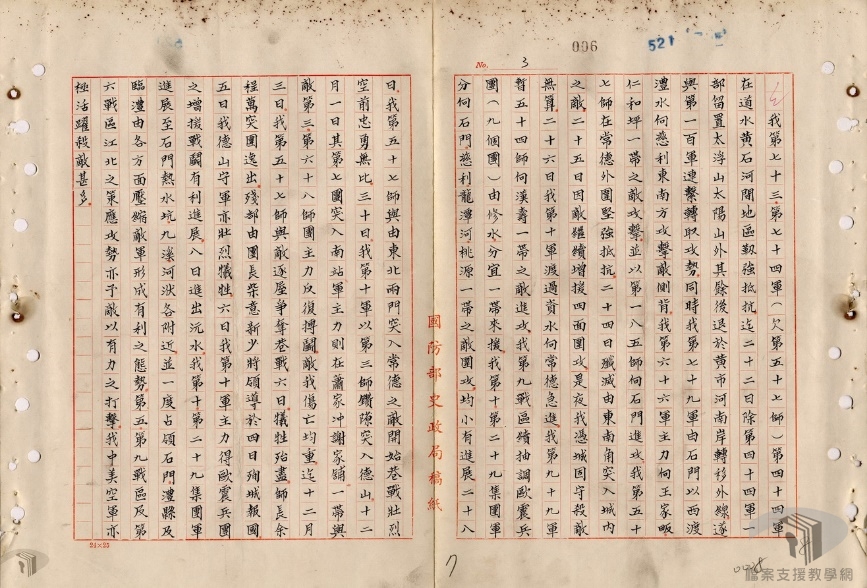 006
521
No. 3
我第七十三.第七十四軍(欠第五十七師)第四十四軍
在道水黃石河間地區堅強抵抗迄二十二日除第四十四軍一
部留置太浮山太陽山外其餘後退於黃市河南岸轉移外線遂
與第一百軍連繫轉取攻勢同時我第七十九軍由石門以西渡
澧水向慈利東南方攻擊敵側背我第六十六軍主力向王家畈
仁和坪一帶之敵攻擊並以第一八五師向石門進攻我第五十
七師在常德外圍堅強抵抗二十四日殲滅由東南角突入城內
之敵二十五日因敵繼續增援四面圍攻是夜我憑城固守殺敵
無算二十六日我第十軍渡過資水向常德急進我第九十九軍
暫五十四師向漢壽一帶之敵進攻我第九戰區續抽調歐震兵
團(九個團)由修水分宜一帶來援我第十第二十九集團軍
分向石門慈利龍潭河桃源一帶之敵圍攻均小有進展二十八
國防部史政局稿紙
日我第五十七師與由東北兩門突入常德之敵開始巷戰壯烈
空前忠勇無比三十日我第十軍以第三師鑽隙突入德山十二
月一日其第七團突入南站軍主力則在蕭家冲謝家舖一帶與
敵第三.第六十八師團主力反復搏鬭敵我傷亡均重迄十二月
三日我第五十七師與敵逐屋爭奪巷戰六日犧牲殆盡師長余
程萬突圍逸出殘部由團長柴意新少將領導於四日殉城報國
五日我德山守軍亦壯烈犧牲六日我第十軍主力得歐震兵團
之增援戰鬭有利進展八日進出沅水我第十第二十九集團軍
進展至石門熱水坑九溪河洑各附近並一度占領石門澧縣及
臨澧由各方面壓縮敵軍形成有利之態勢第五第九戰區及第
六戰區江北之策應攻勢亦予敵以有力之打擊我中美空軍亦
極活躍殺敵甚多
24×25
7
檔案支援教學網